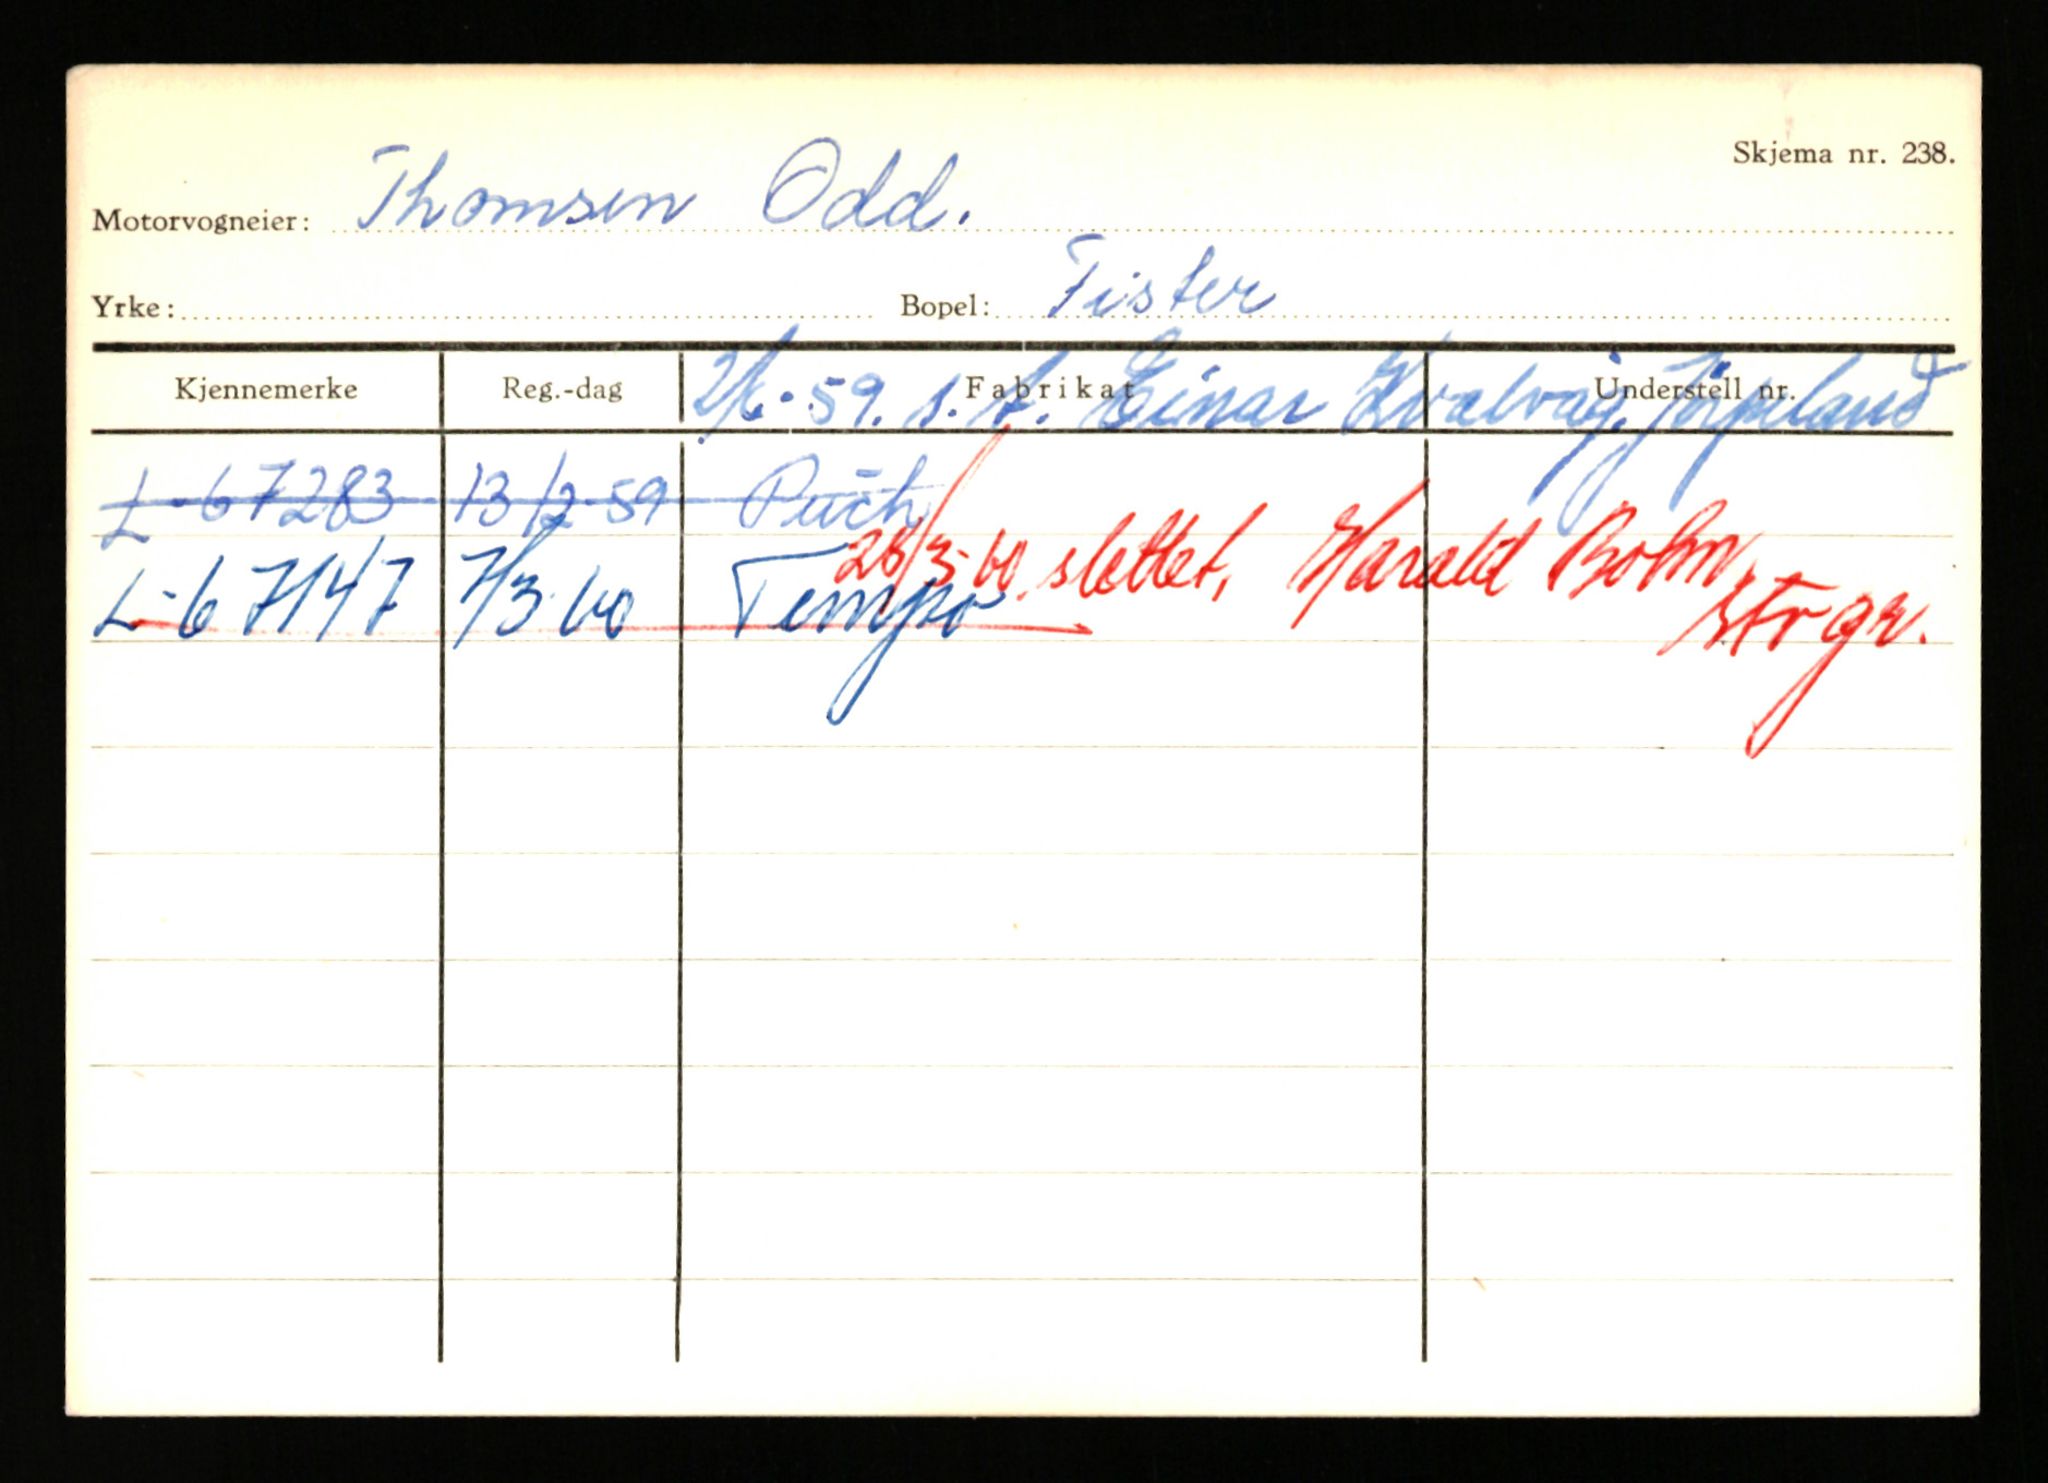 Skjema nr. 238.
Motorvogneier: Thomsen Odd.
Yrke: Bopel: Fister
Kjennemerke Reg.-dag Fabrikat Understell nr.
2/6-59. s.t. Einar Kvalvåg, Jørpeland
L-67283 13/2-59 Puch
L-67147 7/3-60 Tempo
28/3-60 slettet, Harald Bohn,
strgr.